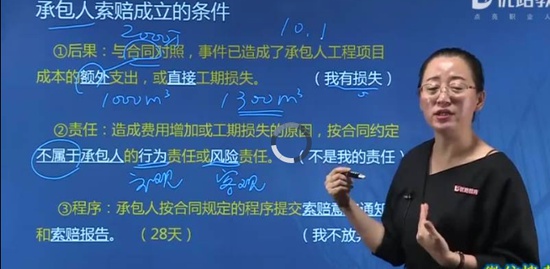 承包人索赔成立的条件
10.1
①后果:与合同对照,事件已造成了承包人工程项目
成本的额外支出,或直接工期损失。 (我有损失)
1000m³ 1300m³
②责任:造成费用增加或工期损失的原因,按合同约定
不属于承包人的行为责任或风险责任。 (不是我的责任)
主观 客观
③程序:承包人按合同规定的程序提交索赔意 通知
和索赔报告。(28天) (我不放